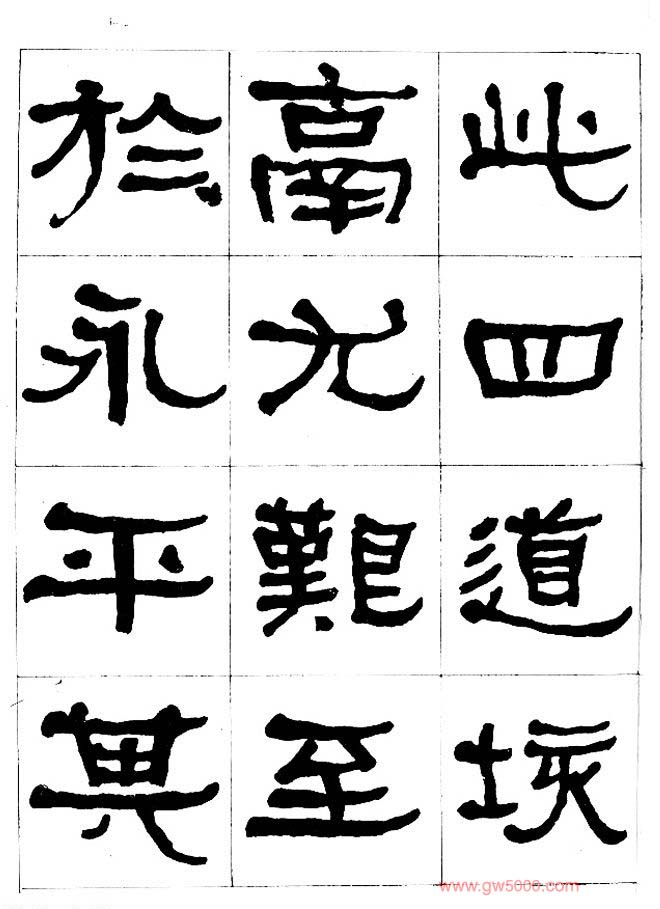 此四道垓
鬲尤艱至
於永平其
www.gw5000.com